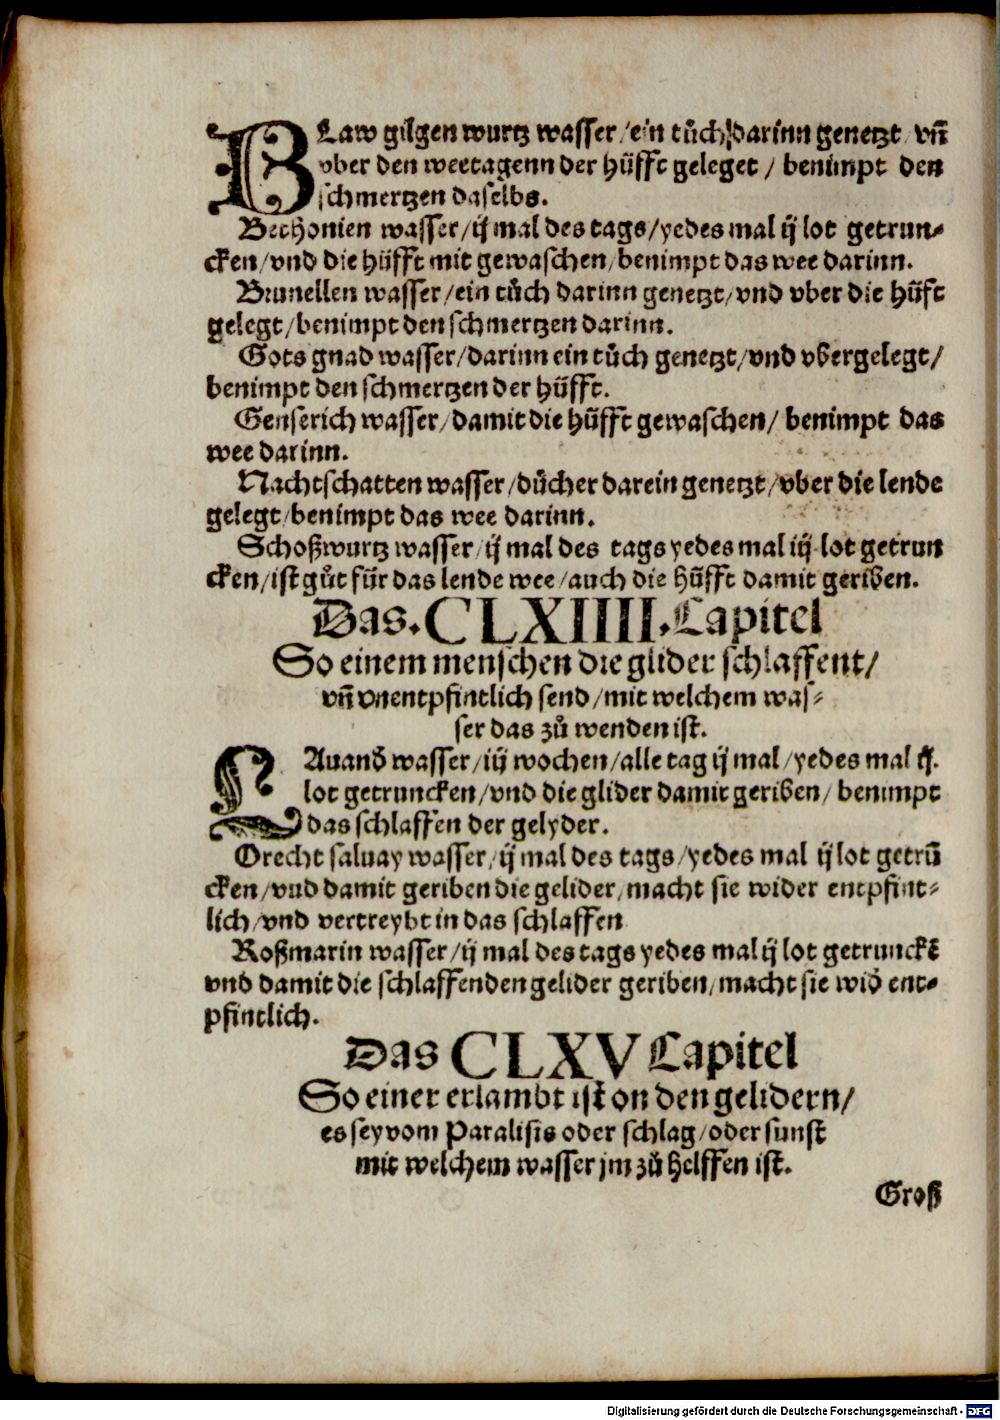 BLaw gilgen wurtz wasser / ein tůch darinn genetzt / vñ
vber den weetagenn der hüfft geleget / benimpt den
schmertzen daselbs.
Bethonien wasser / ij mal des tags / yedes mal ij lot getrun⸗
cken / vnd die hüfft mit gewaschen / benimpt das wee darinn.
Brunellen wasser / ein tůch darinn genetzt / vnd vber die hüft
gelegt / benimpt den schmertzen darinn.
Gots gnad wasser / darinn ein tůch genetzt / vnd vbergelegt /
benimpt den schmertzen der hüfft.
Genserich wasser / damit die hüfft gewaschen / benimpt das
wee darinn.
Nachtschatten wasser / důcher darein genetzt / vber die lende
gelegt / benimpt das wee darinn.
Schoßwurtz wasser / ij mal des tags yedes mal iij lot getrun
cken / ist gůt für das lende wee / auch die hüfft damit geriben.
Das. CLXIIII. Capitel
So einem menschen die glider schlaffent /
vñ vnentpfintlich send / mit welchem was⸗
ser das zů wenden ist.
LAuand wasser / iij wochen / alle tag ij mal / yedes mal ij.
lot getruncken / vnd die glider damit geriben / benimpt
das schlaffen der gelyder.
Orecht saluay wasser / ij mal des tags / yedes mal ij lot getrū
cken / vnd damit geriben die gelider / macht sie wider entpfint⸗
lich / vnd vertreybt in das schlaffen
Roßmarin wasser / ij mal des tags yedes mal ij lot getrunckē
vnd damit die schlaffenden gelider geriben / macht sie wid̕ ent⸗
pfintlich.
Das CLXV Capitel
So einer erlambt ist on den gelidern /
es sey vom Paralisis oder schlag / oder sunst
mit welchem wasser jm zů helffen ist.
Groß
Digitalisierung gefördert durch die Deutsche Forschungsgemeinschaft - DFG